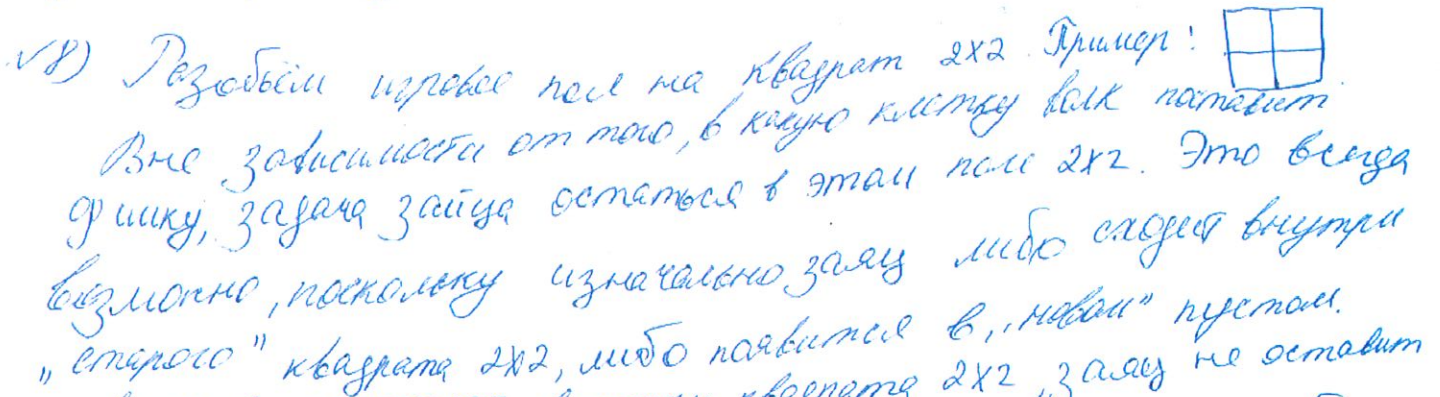 √8) Разобьём игровое пол на квадрат 2x2. Пример:
Вне зависимости от того, в какую клетку волк поставит
фишку, задача зайца остаться в этом поле 2x2. Это всегда
возможно, поскольку изначально заяц либо сходит внутри
„старого" квадрата 2x2, либо появится в „новом" пустом.
квадрата 2x2, заяц не оставит